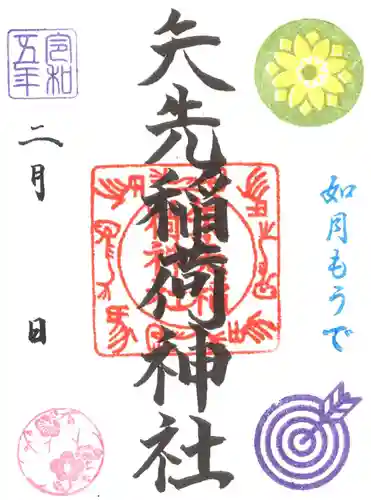 矢先稲荷神社
如月もうで
令和
五年
二月
日